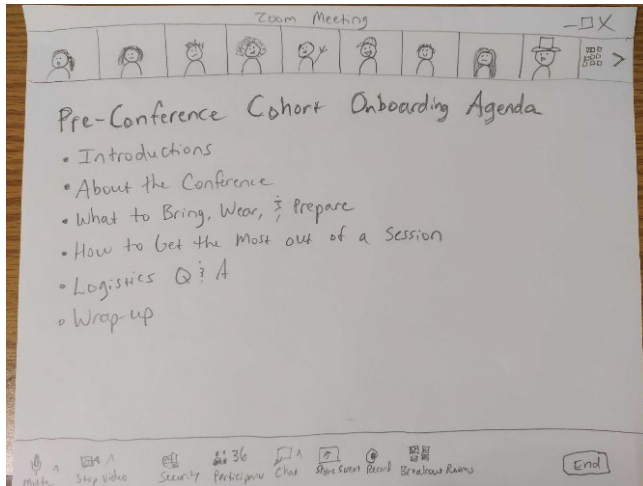 Zoom Meeting
Pre-Conference Cohort Onboarding Agenda
• Introductions
• About the Conference
• What to Bring, Wear, & Prepare
• How to Get the Most out of a Session
• Logistics Q & A
• Wrap-up
36
Mute Stop Video Security Participants Chat Share Screen Record Breakout Rooms End